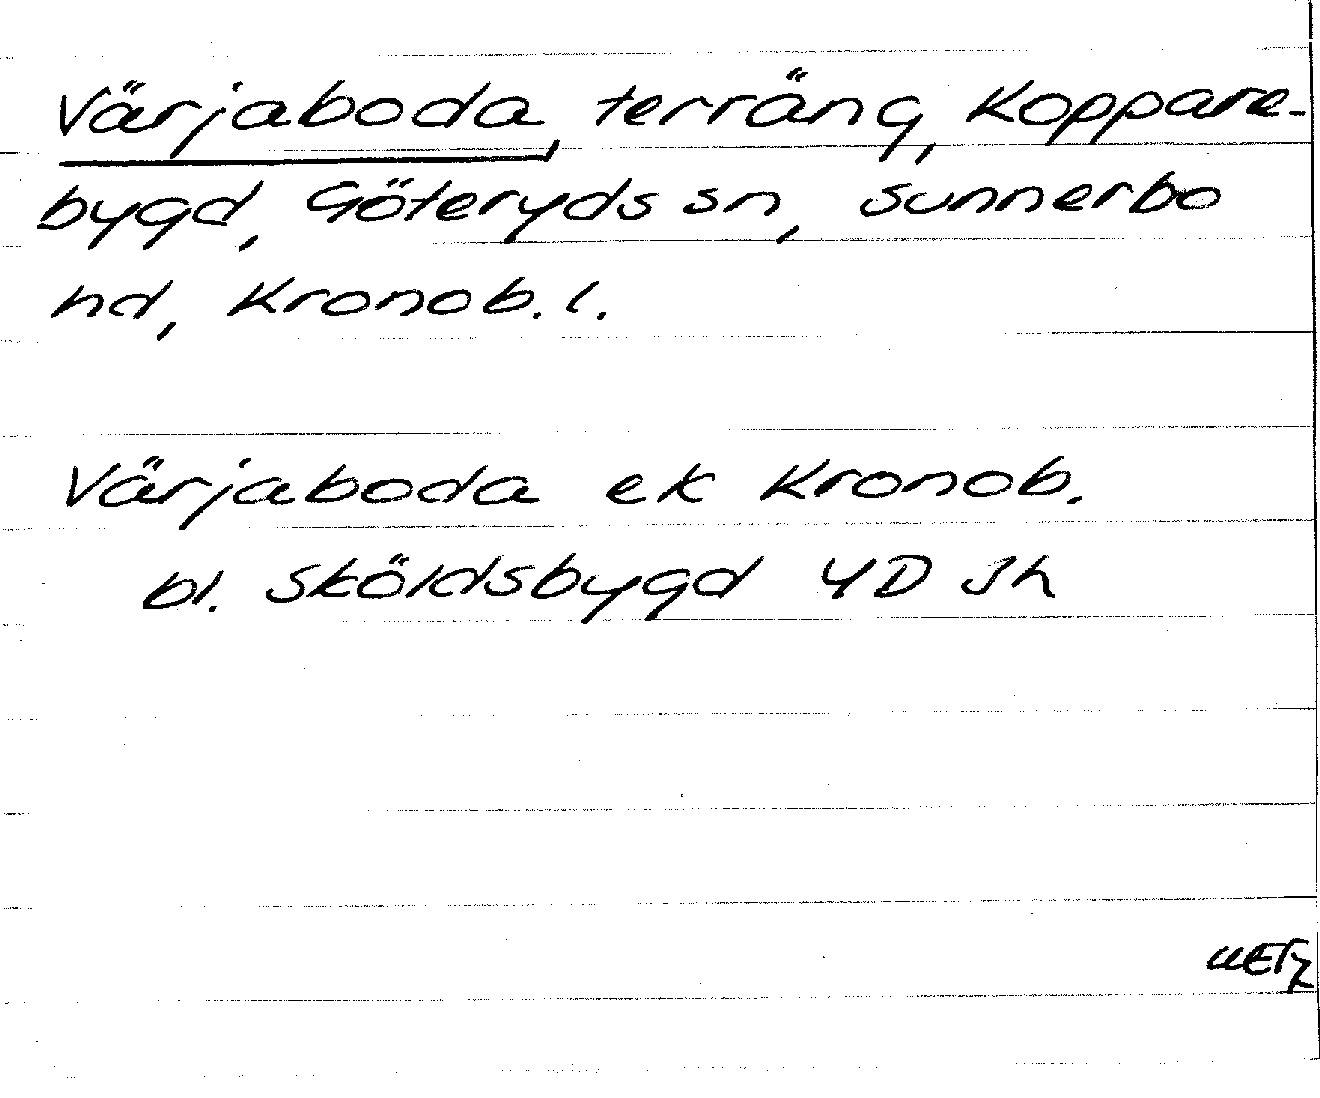 Värjaboda, terräng, Koppare-
bygd, Göteryds sn, Sunnerbo
hd, Kronob. l.
Värjaboda ek Kronob.
bl. Sköldsbygd 4D Sh